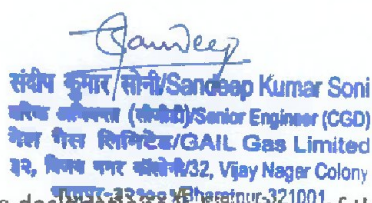 Sandeep
संदीप कुमार सोनी/Sandeep Kumar Soni
वरिष्ठ अभियन्ता (सीजीडी)/Senior Engineer (CGD)
गेल गैस लिमिटेड/GAIL Gas Limited
३२, विजय नगर कॉलोनी/32, Vijay Nagar Colony
/Bharatpur-321001